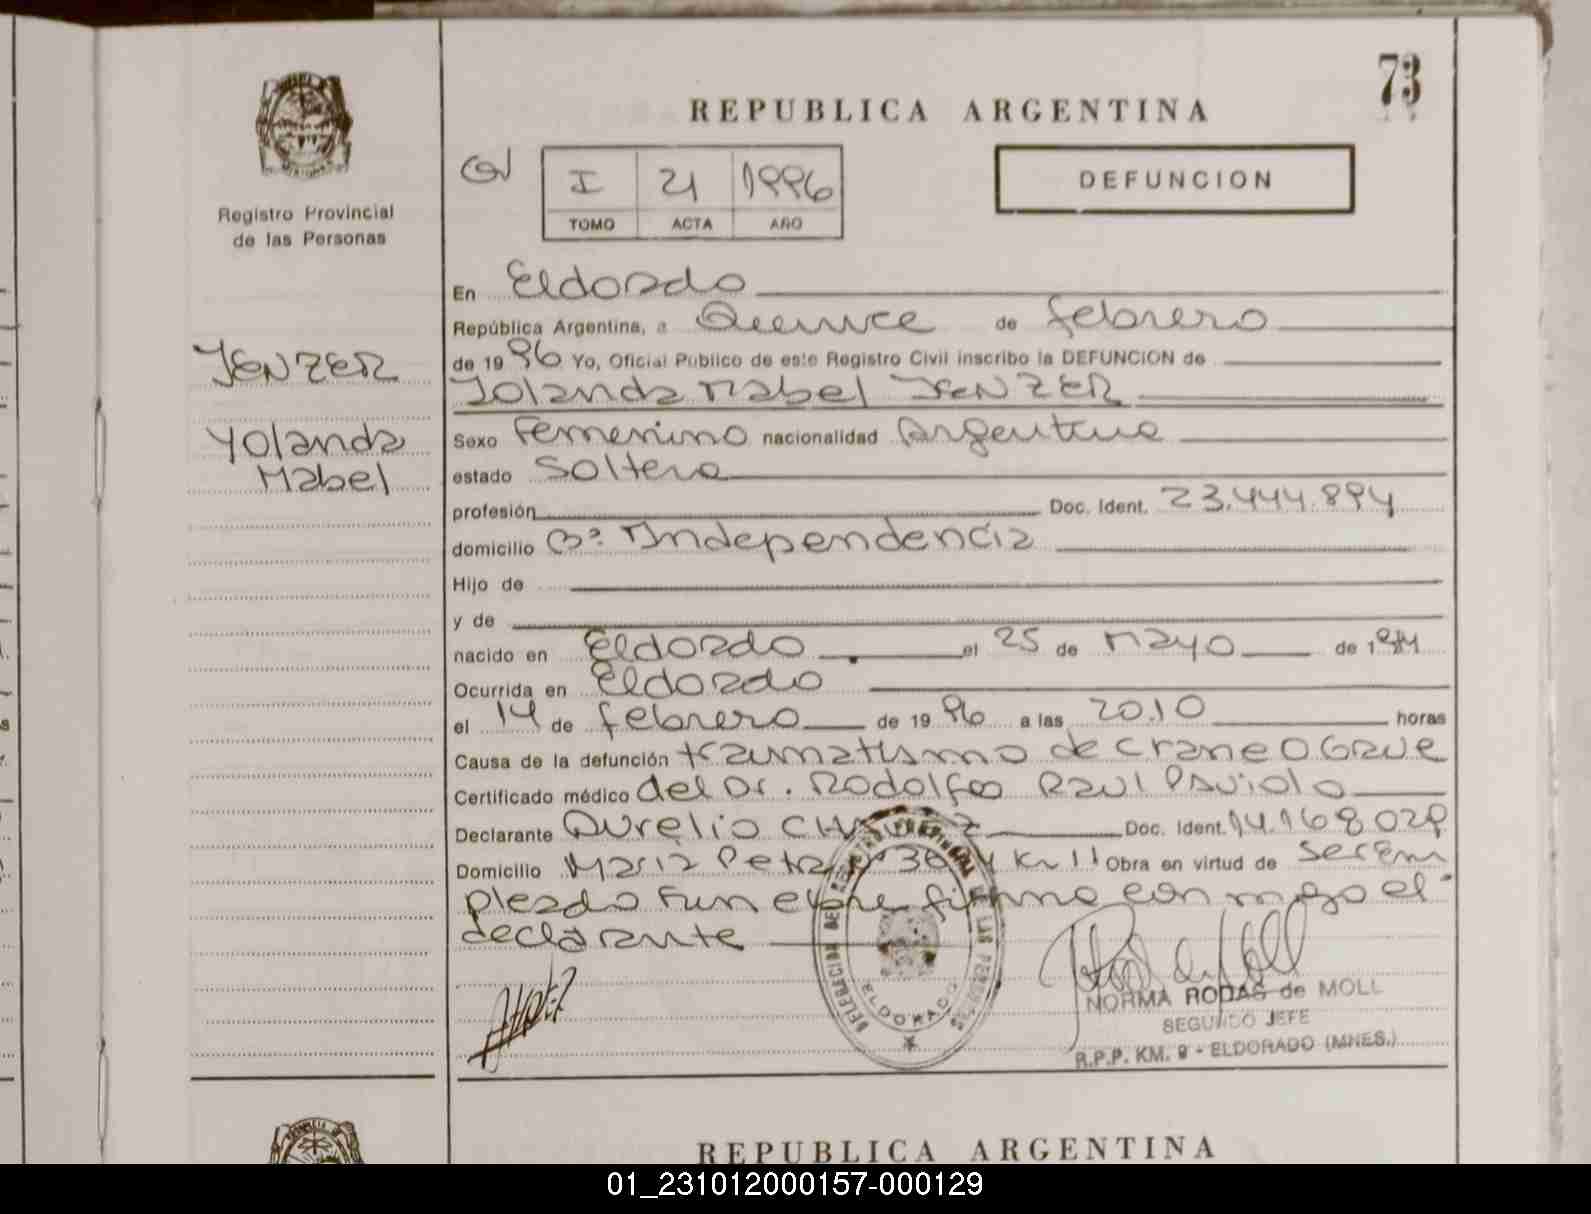 73
REPUBLICA ARGENTINA
I 21 1996
TOMO ACTA AÑO
DEFUNCION
Registro Provincial
de las Personas
JENZER
Yolanda
Mabel
En Eldorado
República Argentina, a Quince de febrero
de 1996 Yo, Oficial Publico de este Registro Civil inscribo la DEFUNCION de
Yolanda Mabel JENZER
Sexo Femenino nacionalidad Argentina
estado Soltera
profesión Doc. Ident. 23.444.894
domicilio Bº. Independencia
Hijo de
y de
nacido en Eldorado el 25 de Mayo de 1
Ocurrida en Eldorado
el 14 de febrero de 1996 a las 20.10 horas
Causa de la defunción traumatismo de craneo Grave
Certificado médico del Dr. Rodolfo Raul Paviolo
Declarante Aurelio Doc. Ident. 14.168.029
Domicilio Maria Km 11 Obra en virtud de ser em
pleado Funebre firma conmigo el
declarante
DELEGACION DEL REGISTRO PROVINCIAL DE LAS PERSONAS
ELDORADO
NORMA RODAS de MOLL
SEGUNDO JEFE
R.P.P. KM. 9 - ELDORADO (MNES.)
REPUBLICA ARGENTINA
01_231012000157-000129